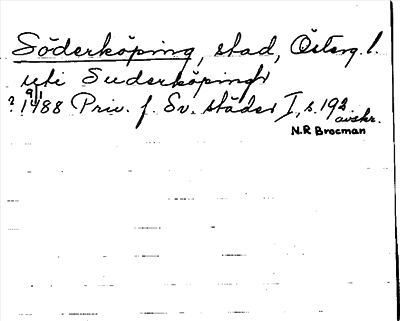 Söderköping, stad, Österg. l.
uti Suderköpingr
9/1
? 1488 Priv. f. Sv. städer I, s. 192
avskr.
N.R Brocman